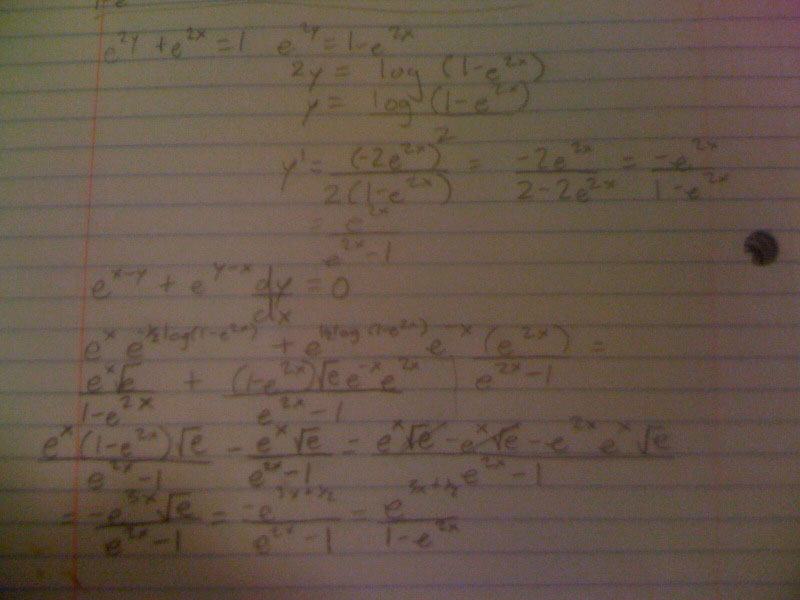 e^{2y} + e^{2x} = 1   e^{2y} = 1 - e^{2x}
2y = log (1 - e^{2x})
y = \frac{log (1 - e^{2x})}{2}
y' = \frac{(-2e^{2x})}{2(1 - e^{2x})} = \frac{-2e^{2x}}{2 - 2e^{2x}} = \frac{-e^{2x}}{1 - e^{2x}}
= \frac{e^{2x}}{e^{2x} - 1}
e^{x-y} + e^{y-x} \frac{dy}{dx} = 0
e^{x} e^{-½log(1-e^{2x})} + e^{½log(1-e^{2x})} e^{-x} \frac{(e^{2x})}{e^{2x} - 1} =
\frac{e^{x}√e}{1 - e^{2x}} + \frac{(1 - e^{2x})√e e^{-x} e^{2x}}{e^{2x} - 1}
\frac{e^{x}(1 - e^{2x})√e}{e^{2x} - 1} - \frac{e^{x}√e}{e^{2x} - 1} = \frac{e^{x}√e - e^{x}√e - e^{2x} e^{x}√e}{e^{2x} - 1}
= \frac{-e^{3x}√e}{e^{2x} - 1} = \frac{-e^{3x+½}}{e^{2x} - 1} = \frac{e^{3x+½}}{1 - e^{2x}}